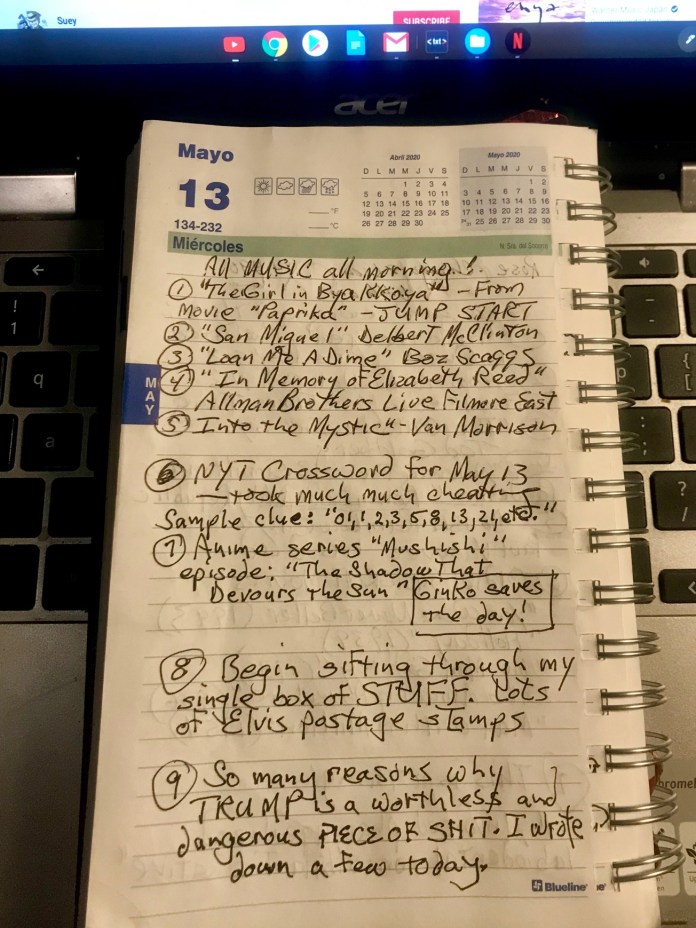 Suey
SUBSCRIBE
enya
<txt>
acer
Mayo
13
134-232
°F
°C
Abril 2020
D L M M J V S
1 2 3 4
5 6 7 8 9 10 11
12 13 14 15 16 17 18
19 20 21 22 23 24 25
26 27 28 29 30
Mayo 2020
D L M M J V S
1 2
3 4 5 6 7 8 9
10 11 12 13 14 15 16
17 18 19 20 21 22 23
25 26 27 28 29 30
Miércoles
All MUSIC all morning!
① "The Girl in Byakkoya" - From
Movie "Paprika" - JUMP START
② "San Miguel" Delbert McClinton
③ "Loan Me A Dime" Boz Scaggs
④ "In Memory of Elizabeth Reed"
Allman Brothers Live Filmore East
⑤ Into the Mystic" - Van Morrison
⑥ NYT Crossword for May 13
— took much much cheating
Sample clue: "01,1,2,3,5,8,13,21,etc."
⑦ Anime series "Mushishi"
episode: "The Shadow That
Devours the Sun" Ginko saves
the day!
⑧ Begin sifting through my
single box of STUFF. Lots
of Elvis postage stamps
⑨ So many reasons why
TRUMP is a worthless and
dangerous PIECE OF SHIT. I wrote
down a few today.
MAY
Blueline
!
1
q
a
p